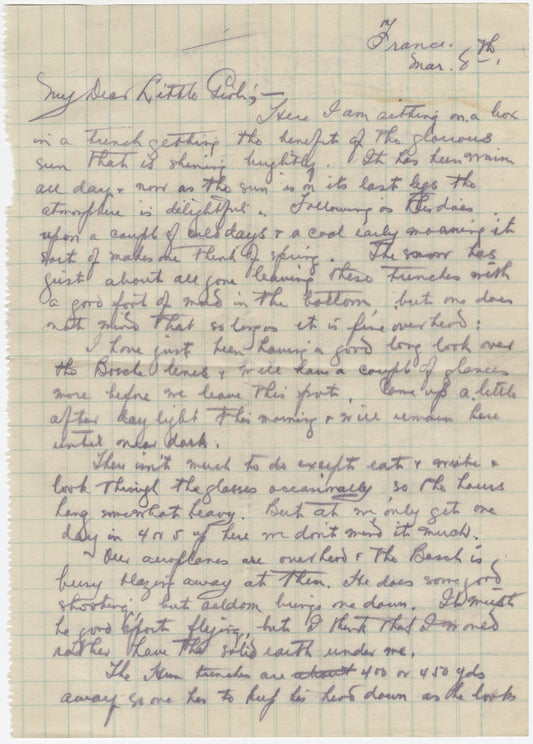 France.
Mar. 8th.
My Dear Little Girl;—
Here I am sitting on a box
in a trench getting the benefit of the glorious
sun that is shining brightly. It has been warm
all day & now as the sun is on its last legs the
atmosphere is delightful. Following as this does
upon a couple of cold days & a cool early morning it
sort of makes one think of spring. The snow has
just about all gone leaving these trenches with
a good foot of mud in the bottom, but one does
not mind that so long as it is fine overhead.
I have just been having a good long look over
the Bosch lines & will have a couple of glances
more before we leave this spot. Came up a little
after day light this morning & will remain here
until near dark.
There isn't much to do except eat & write &
look through the glasses occasionally so the hours
hang somewhat heavy. But as we only get one
day in 4 or 5 up here we don't mind it much.
Our aeroplanes are overhead & the Bosch is
busy blazing away at them. He does some good
shooting, but seldom brings one down. It must
be good sport flying, but I think that I would
rather have the solid earth under me.
The Hun trenches are about 400 or 450 yds
away so one has to keep his head down as he looks